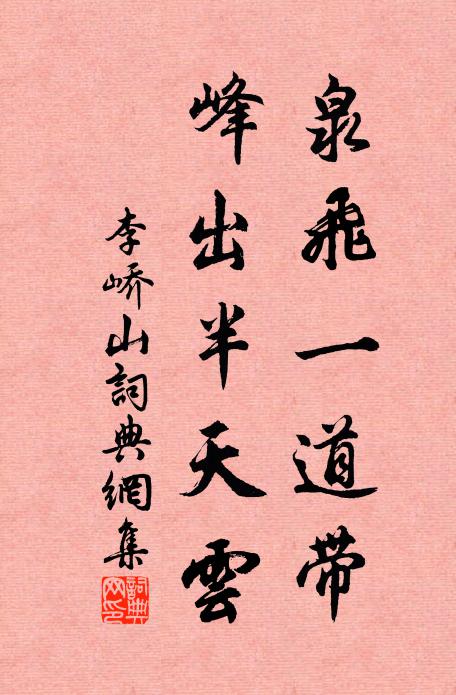 泉飛一道带
峰出半天雲
李峤山詞典網集
詞典网印